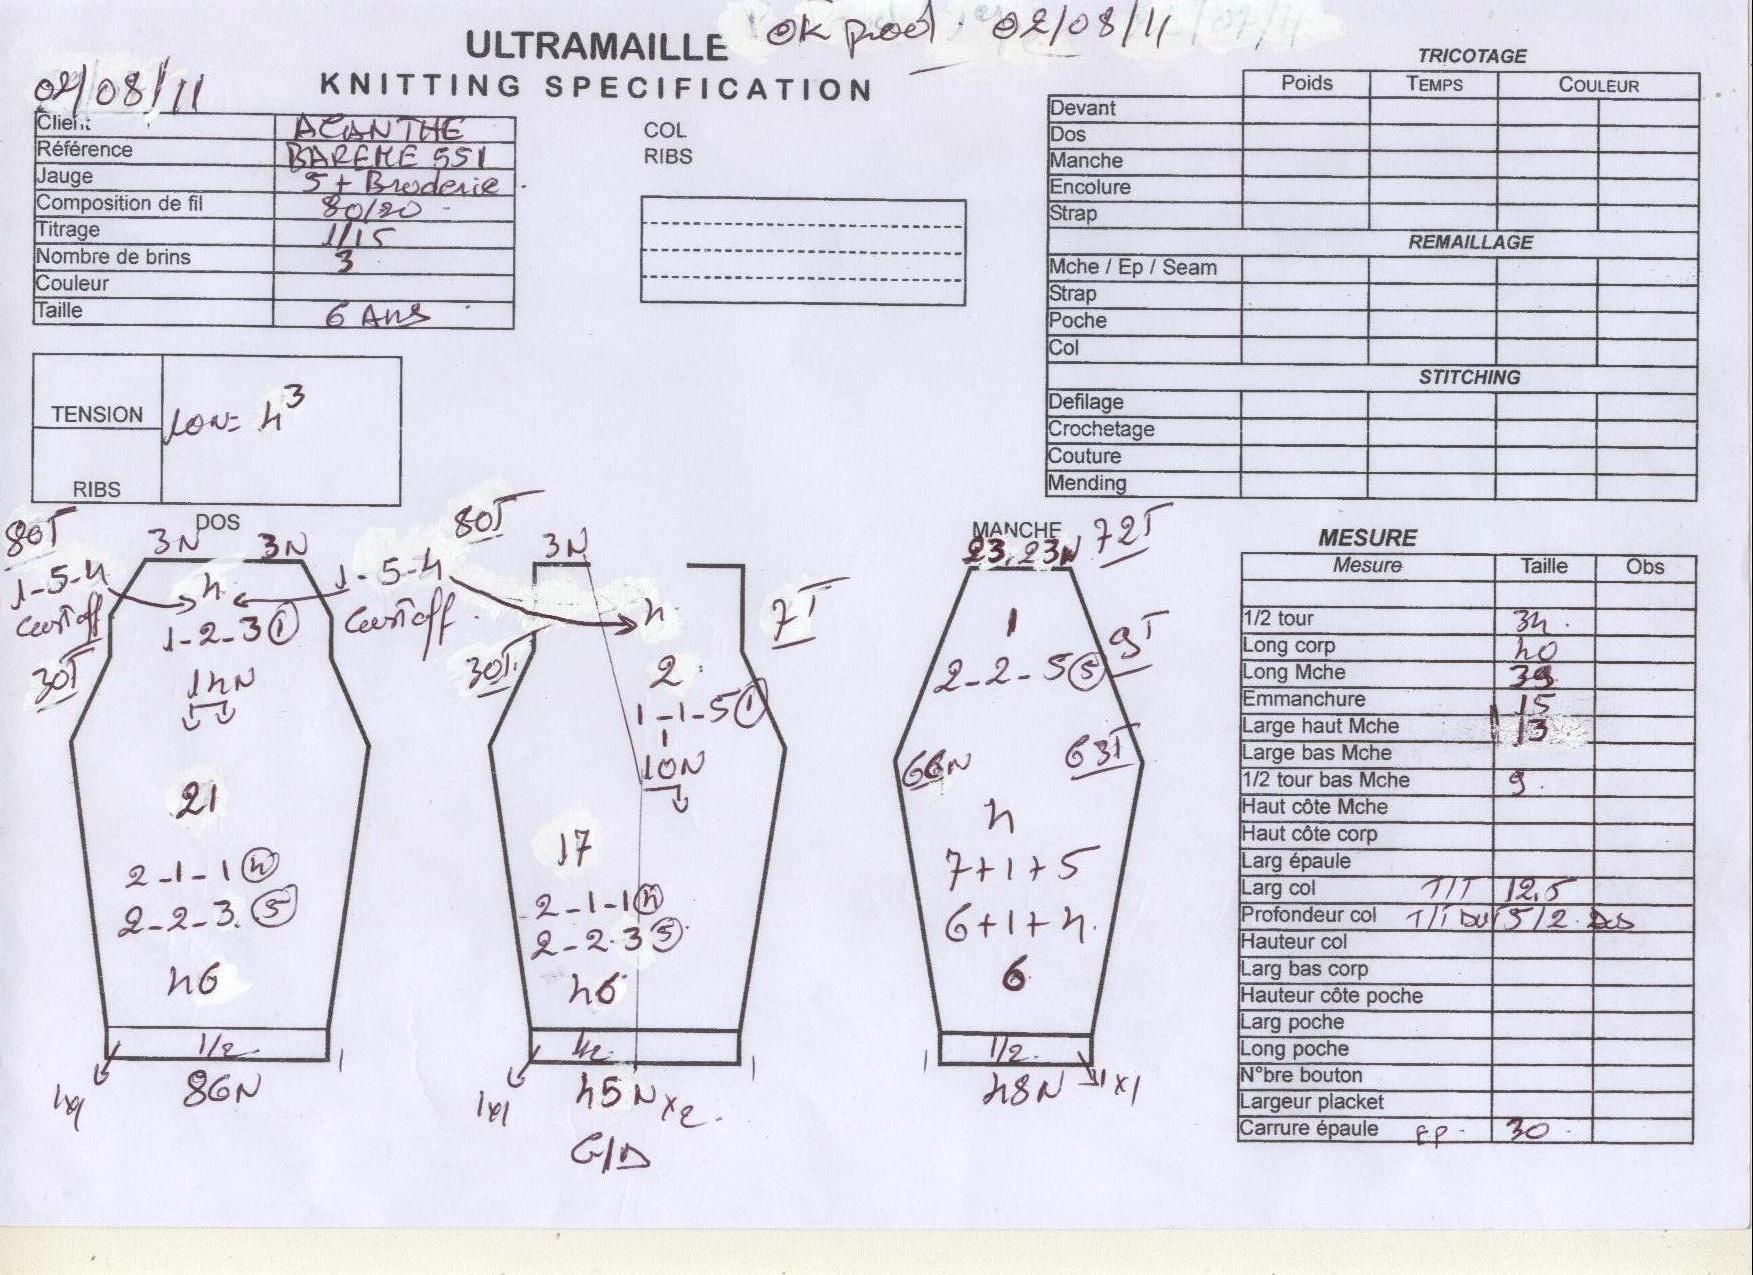 OK prod. 02/08/11
ULTRAMAILLE
KNITTING SPECIFICATION
02/08/11
Client ACANTHE
Référence BAREME 551
Jauge 5 + Broderie
Composition de fil 80/20
Titrage 1/15
Nombre de brins 3
Couleur
Taille 6 Ans
COL
RIBS
TRICOTAGE
Poids TEMPS COULEUR
Devant
Dos
Manche
Encolure
Strap
REMAILLAGE
Mche / Ep / Seam
Strap
Poche
Col
STITCHING
Defilage
Crochetage
Couture
Mending
TENSION
RIBS
DOS
80T
3N 3N
1-5-4
Castoff
4
1-2-3 1
30T
14N
21
2-1-1 4
2-2-3 5
46
1/2
1
86N
80T
3N
1-5-4
Castoff
4
7T
30T
2
1-1-5 1
1
10N
17
2-1-1 4
2-2-3 5
46
1/2
1
45N x2
G/D
MANCHE
72T
23.23N
1
9T
2-2-5 5
66N
63T
4
7+1+5
6+1+4
6
1/2
1
48N
1x1
MESURE
Mesure Taille Obs
1/2 tour 34
Long corp 40
Long Mche 39
Emmanchure 15
Large haut Mche 13
Large bas Mche
1/2 tour bas Mche 9
Haut côte Mche
Haut côte corp
Larg épaule
Larg col T/T 12,5
Profondeur col T/T 5/2 Dos
Hauteur col
Larg bas corp
Hauteur côte poche
Larg poche
Long poche
N°bre bouton
Largeur placket
Carrure épaule EP 30